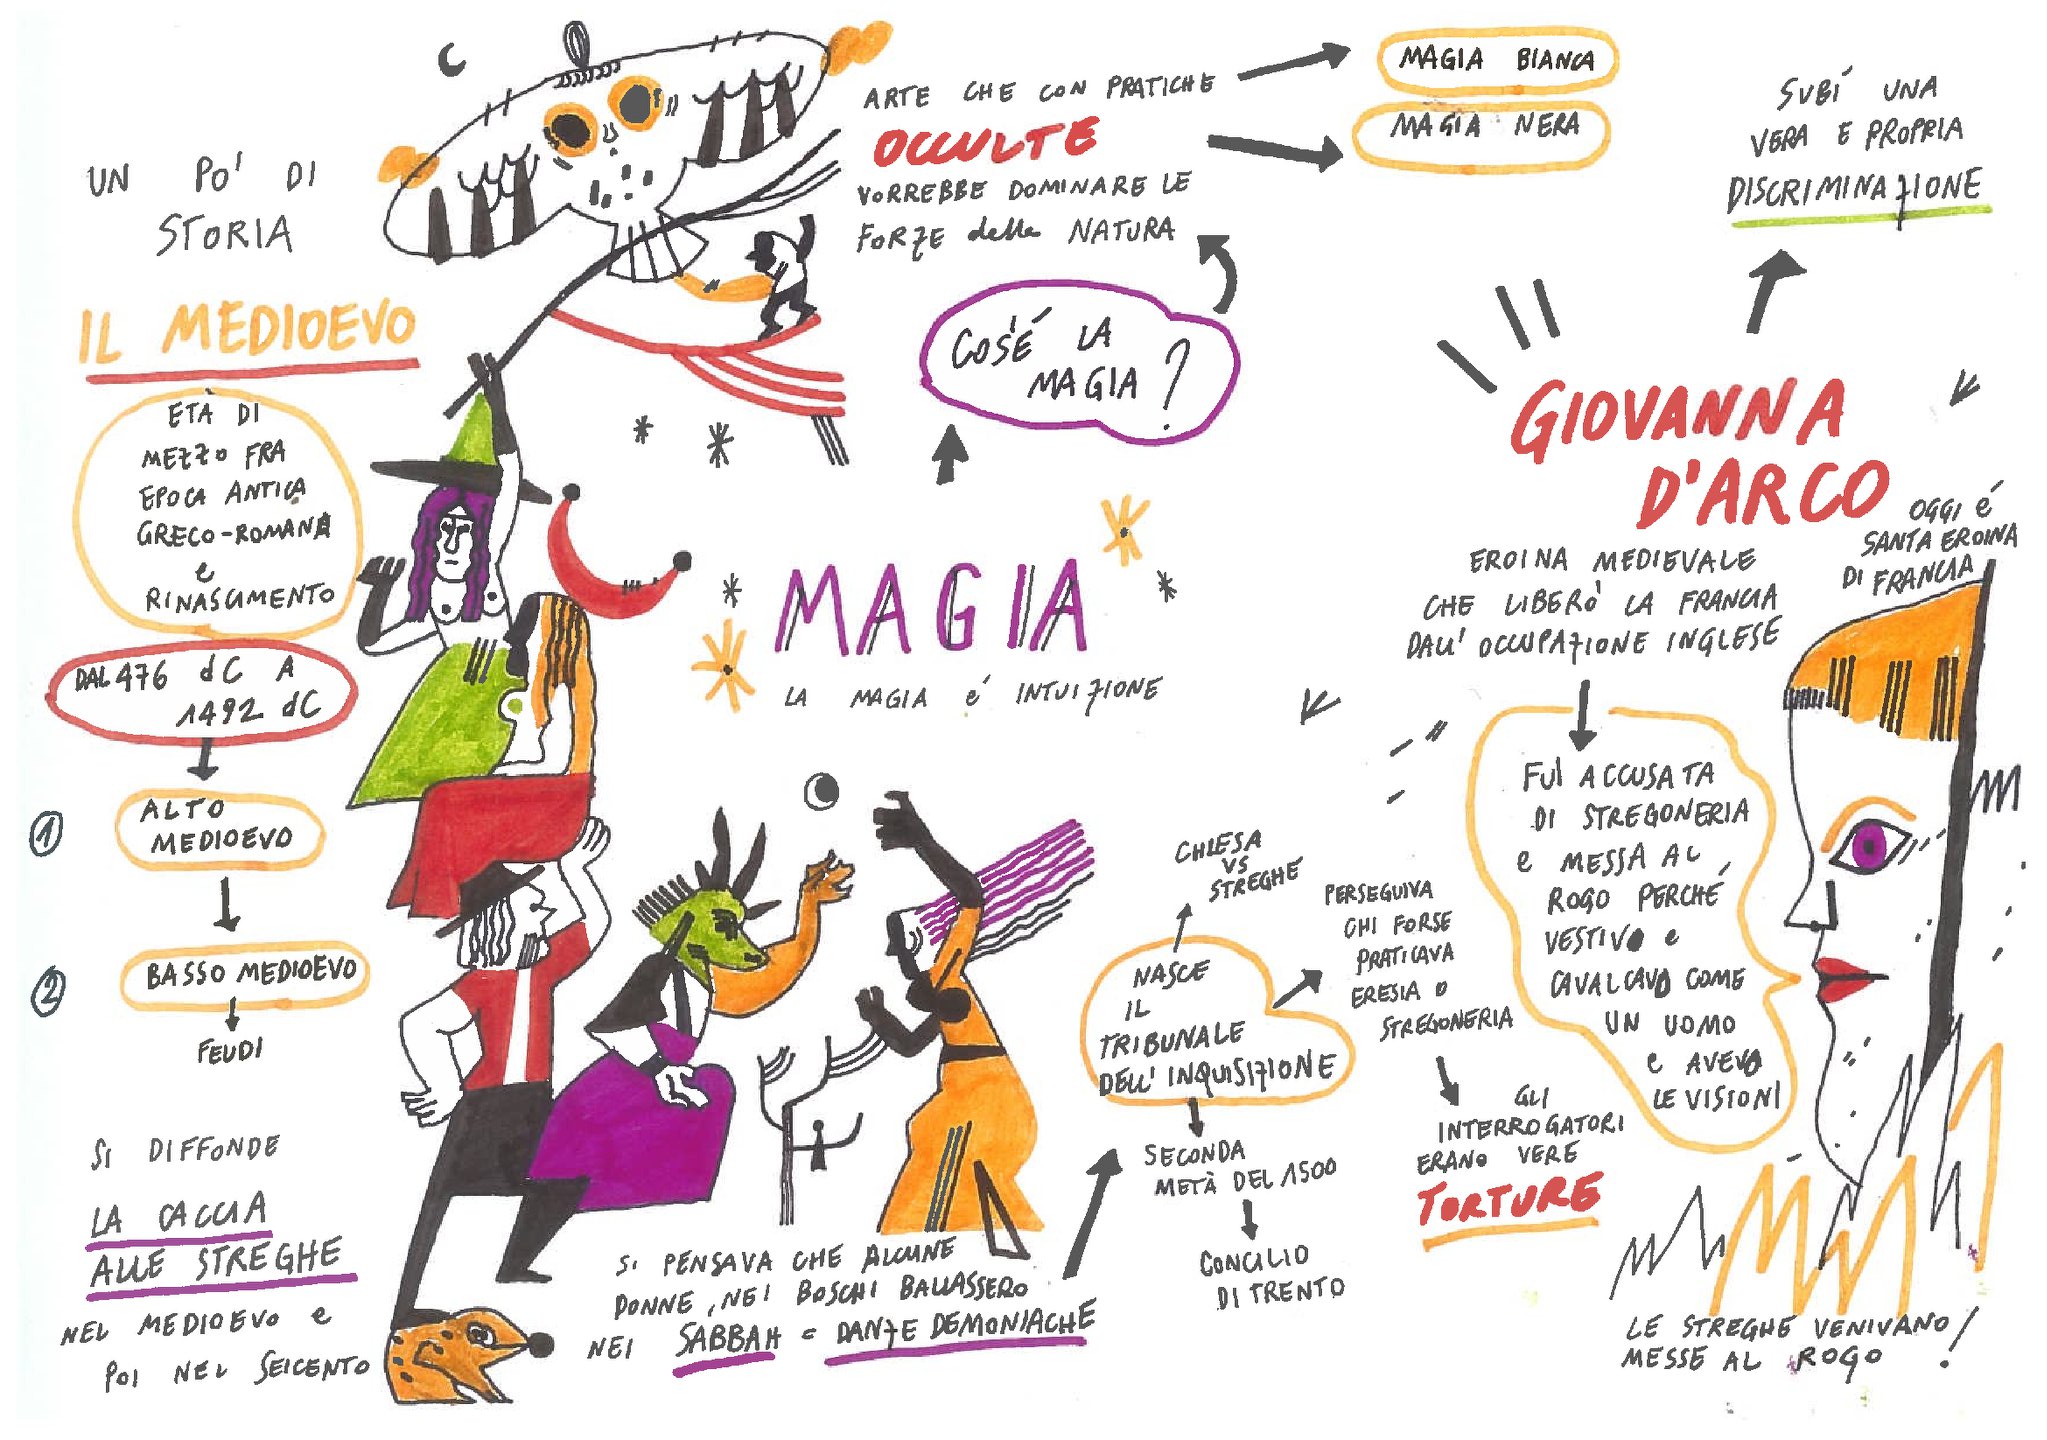 UN PO' DI
STORIA
IL MEDIOEVO
ETÀ DI
MEZZO FRA
EPOCA ANTICA
GRECO-ROMANA
e
RINASCIMENTO
DAL 476 dC A
1492 dC
1
ALTO
MEDIOEVO
2
BASSO MEDIOEVO
FEUDI
SI DIFFONDE
LA CACCIA
ALLE STREGHE
NEL MEDIOEVO e
POI NEL SEICENTO
ARTE CHE CON PRATICHE
OCCULTE
VORREBBE DOMINARE LE
FORZE della NATURA
MAGIA BIANCA
MAGIA NERA
COS'É LA
MAGIA ?
MAGIA
LA MAGIA é INTUIZIONE
SI PENSAVA CHE ALCUNE
DONNE, NEI BOSCHI BALLASSERO
NEI SABBAH = DANZE DEMONIACHE
CHIESA
VS
STREGHE
NASCE
IL
TRIBUNALE
DELL'INQUISIZIONE
SECONDA
METÀ DEL 1500
CONCILIO
DI TRENTO
PERSEGUIVA
CHI FORSE
PRATICAVA
ERESIA O
STREGONERIA
GLI
INTERROGATORI
ERANO VERE
TORTURE
SUBÍ UNA
VERA E PROPRIA
DISCRIMINAZIONE
GIOVANNA
D'ARCO
OGGI é
SANTA EROINA
DI FRANCIA
EROINA MEDIEVALE
CHE LIBERÒ LA FRANCIA
DALL'OCCUPAZIONE INGLESE
FUÌ ACCUSATA
DI STREGONERIA
e MESSA AL
ROGO PERCHÉ
VESTIVO e
CAVALCAVO COME
UN UOMO
e AVEVO
LE VISIONI
LE STREGHE VENIVANO
MESSE AL ROGO !